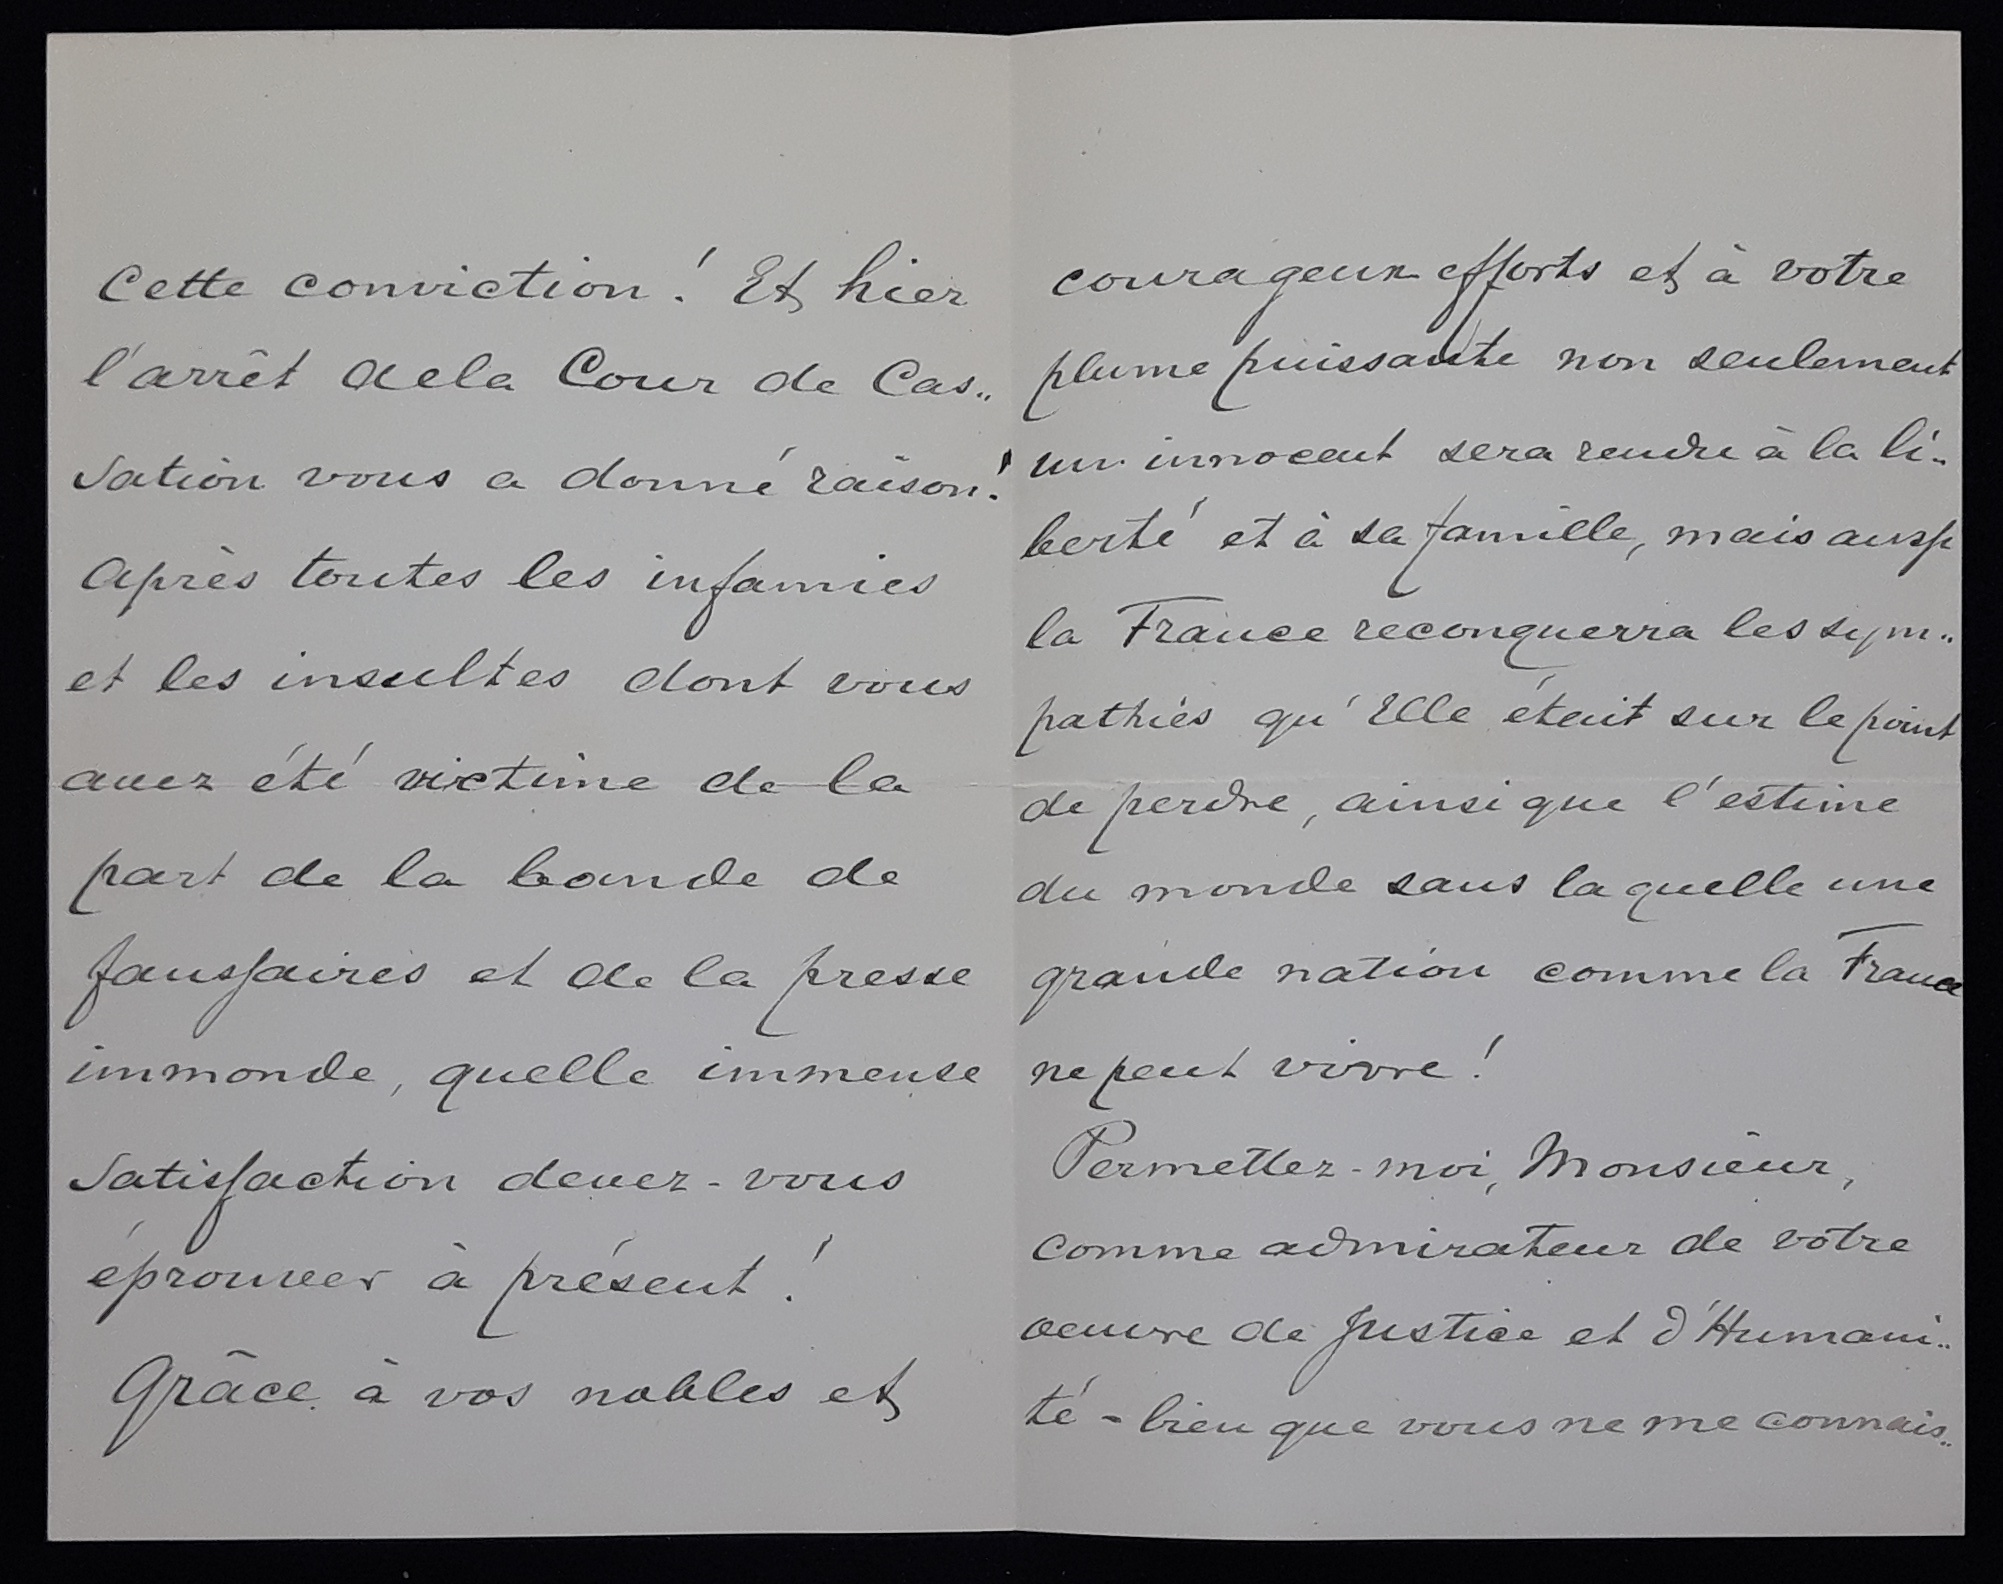 Cette conviction! Et hier
l'arrêt de la Cour de Cas..
sation vous a donné raison!
Après toutes les infamies
et les insultes dont vous
avez été victime de la
part de la bande de
faussaires et de la presse
immonde, quelle immense
satisfaction devez-vous
éprouver à présent!
Grâce à vos nobles et
courageux efforts et à votre
plume puissante non seulement
un innocent sera rendu à la li..
berté et à sa famille, mais aussi
la France reconquerra les sym..
pathies qu'Elle était sur le point
de perdre, ainsi que l'estime
du monde sans laquelle une
grande nation comme la France
ne peut vivre!
Permettez-moi, Monsieur,
comme admirateur de votre
oeuvre de Justice et d'Humani..
té - bien que vous ne me connais..